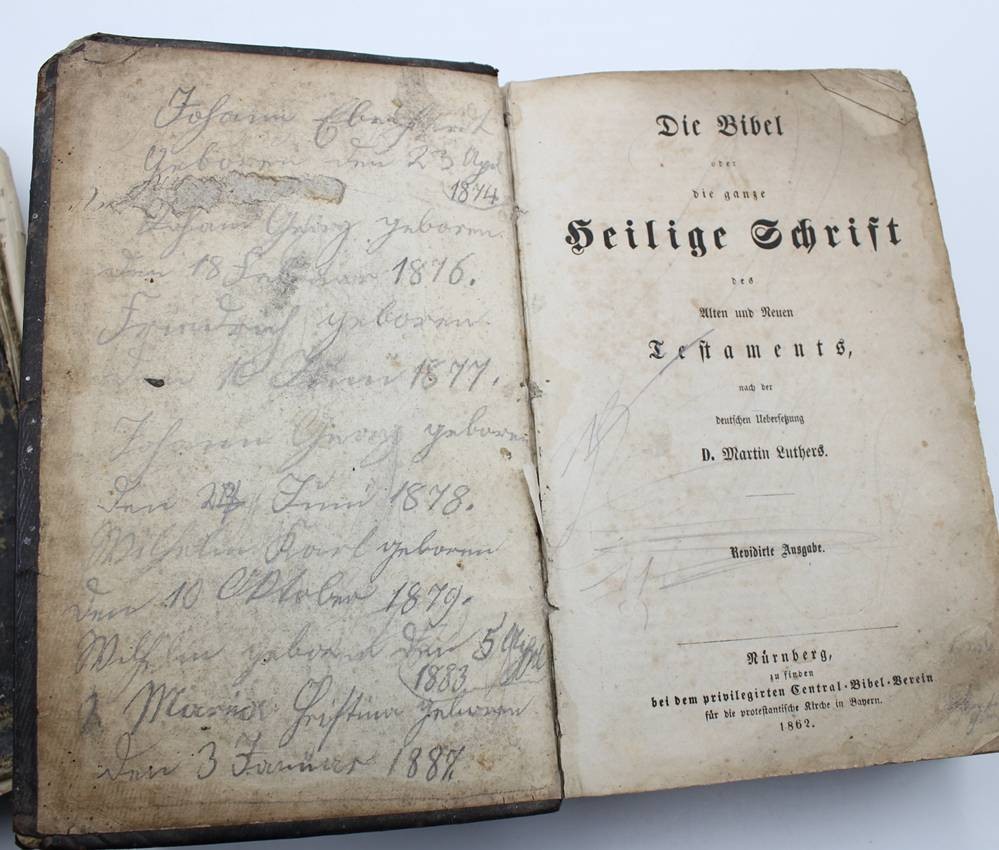 Johann Eberhardt
Geboren den 23 Apr
1874
Johann Georg geboren
den 18 Februar 1876.
Friedrich geboren
den 1877.
Johann Georg geboren
den Juni 1878.
Wilhelm Karl geboren
den 10 Oktober 1879.
Wilhelm geboren den 5
1883
Maria Hristina geboren
den 3 Januar 1887.
Die Bibel
oder
die ganze
Heilige Schrift
des
Alten und Neuen
Testaments,
nach der
deutschen Uebersetzung
D. Martin Luthers.
Revidirte Ausgabe.
Nürnberg,
zu finden
bei dem privilegirten Central-Bibel-Verein
für die protestantische Kirche in Bayern.
1862.